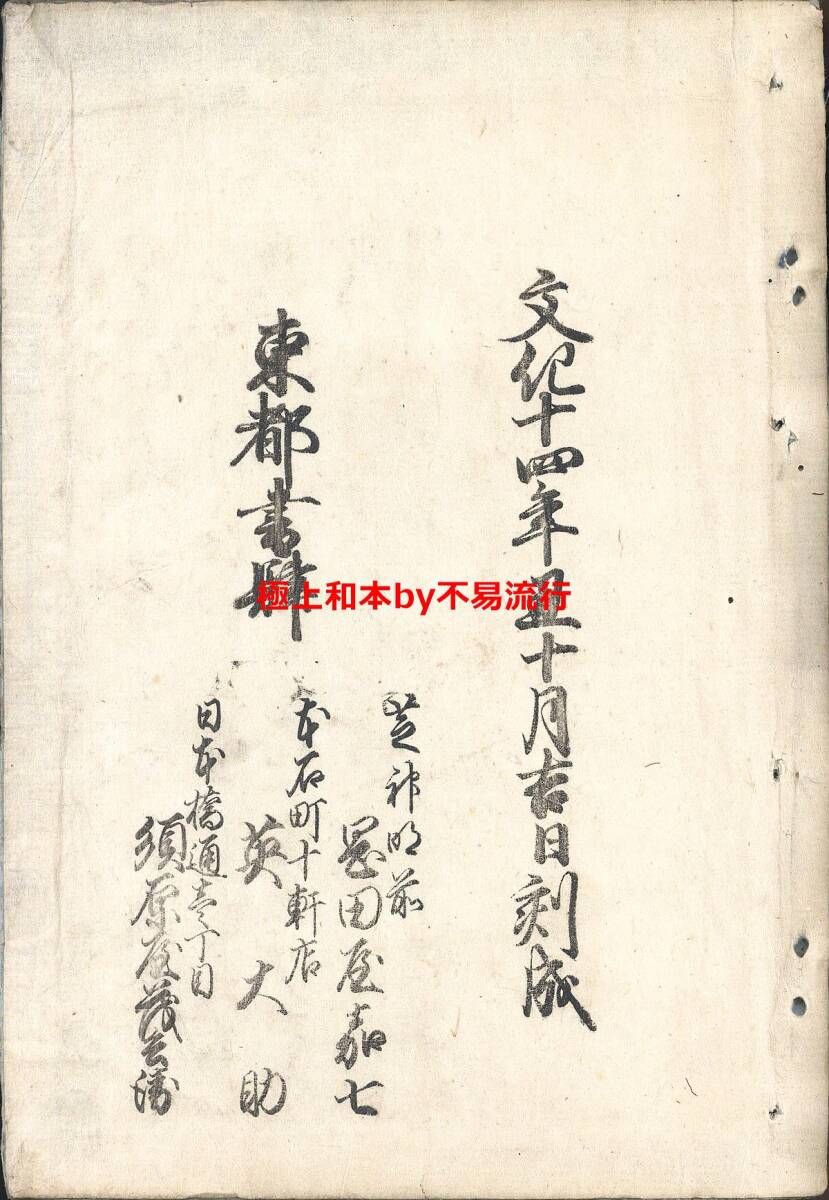 文化十四年丑十月吉日刻成
東都書肆
芝神明前
岡田屋嘉七
本石町十軒店
英大助
日本橋通壱丁目
須原屋茂兵衛
極上和本by不易流行